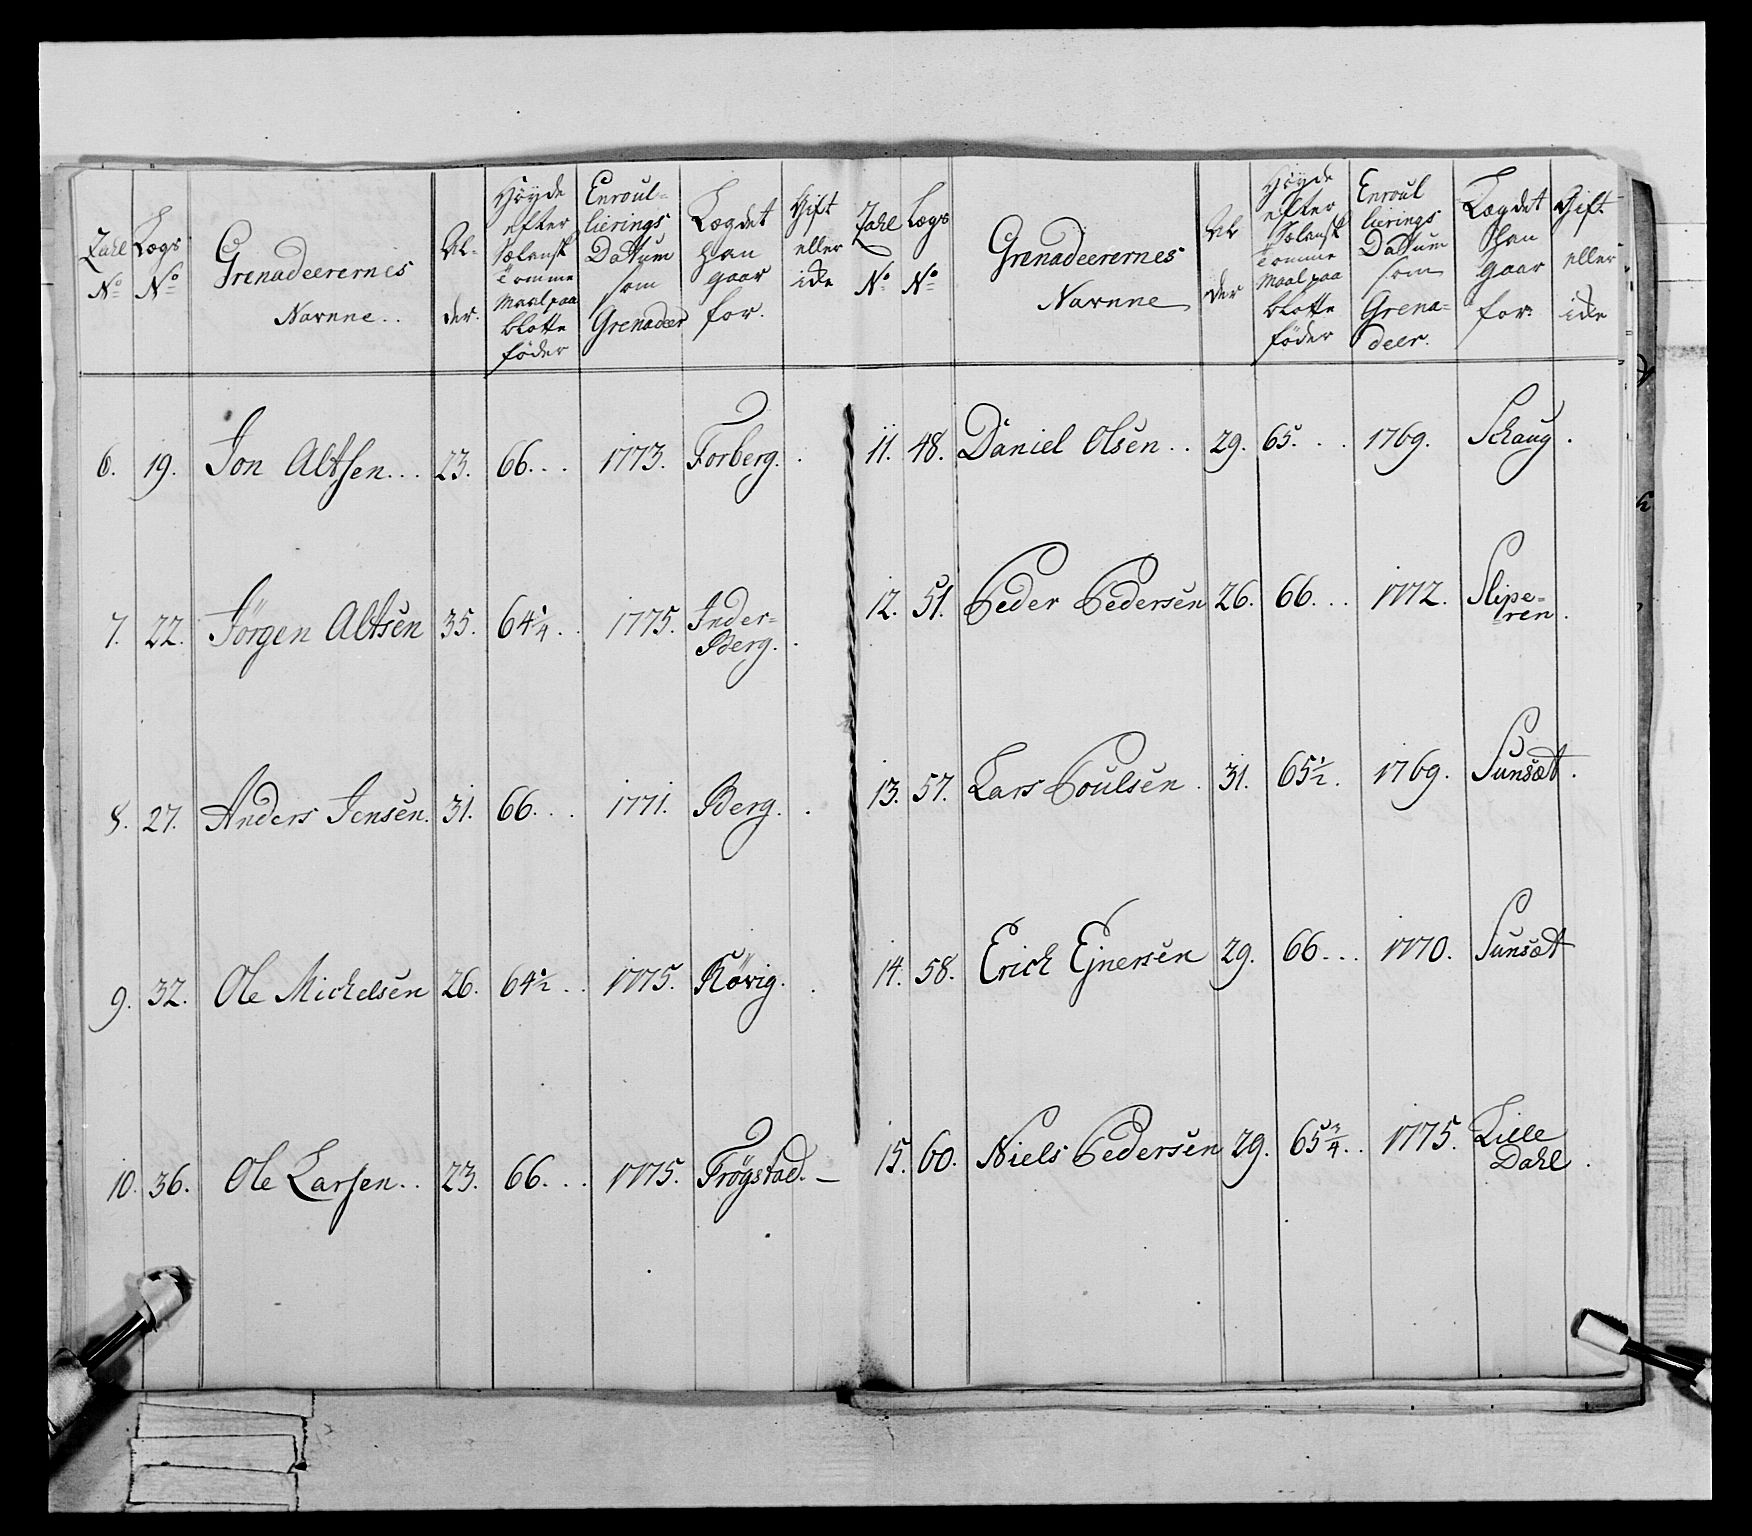 Zahl No
Lægs No
Grenadeerernes Navnne..
Al- der.
Høyde efter Sælansk Tomme Maal paa blotte føder
Enroul- lierings Dattum som Grenadeer
Lægdet han gaar for.
Gift eller icke
6. 19. Jon Altsen... 23. 66... 1773. Forberg.
7. 22. Jörgen Altsen 35. 64 1/4.. 1775. Inder-
Berg.
8. 27. Anders Jensen. 31. 66... 1771. Berg.
9. 32. Ole Michelsen 26. 64 1/2.. 1775. Røvig.
10. 36. Ole Larsen.. 23. 66... 1775. Frögstad. —
Zahl No
Lægs No
Grenadeerernes Navnne
Al der
Høyde efter Sælansk Tomme Maal paa blotte føder
Enroul lierings Dattum som Grena= deer.
Lægdet han gaar for.
Gift eller icke
11. 48. Daniel Olsen.. 29. 65... 1769. Schaug.
12. 51. Peder Pedersen 26. 66... 1772. Slipe=
=ren.
13. 57. Lars Poulsen. 31. 65 1/2. 1769. Sunsæt.
14. 58. Erich Ejnersen 29. 66... 1770. Sunsæt
15. 60. Niels Pedersen 29. 65 3/4.. 1775. Lille
Dahl.